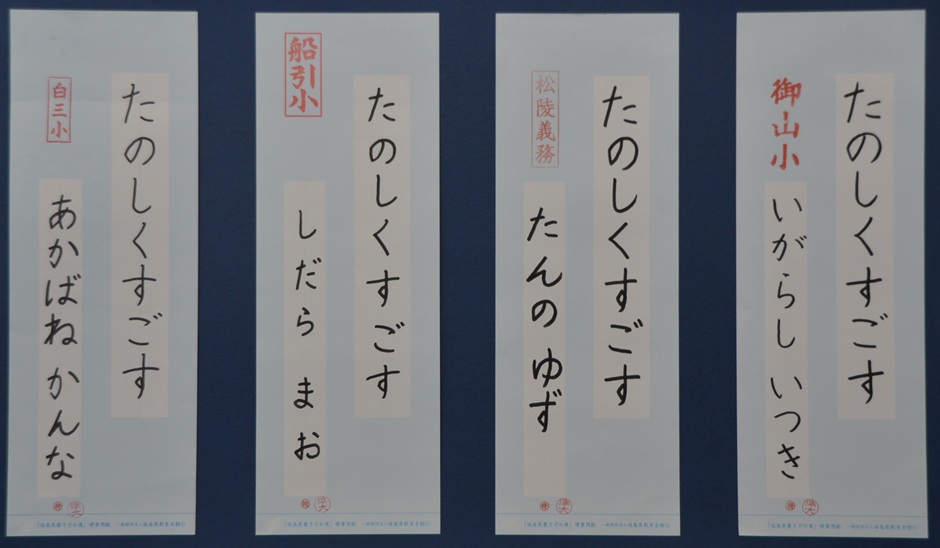 たのしくすごす
白三小
あかばね かんな
たのしくすごす
船引小
しだら まお
たのしくすごす
松陵義務
たんの ゆず
たのしくすごす
御山小
いがらし いつき